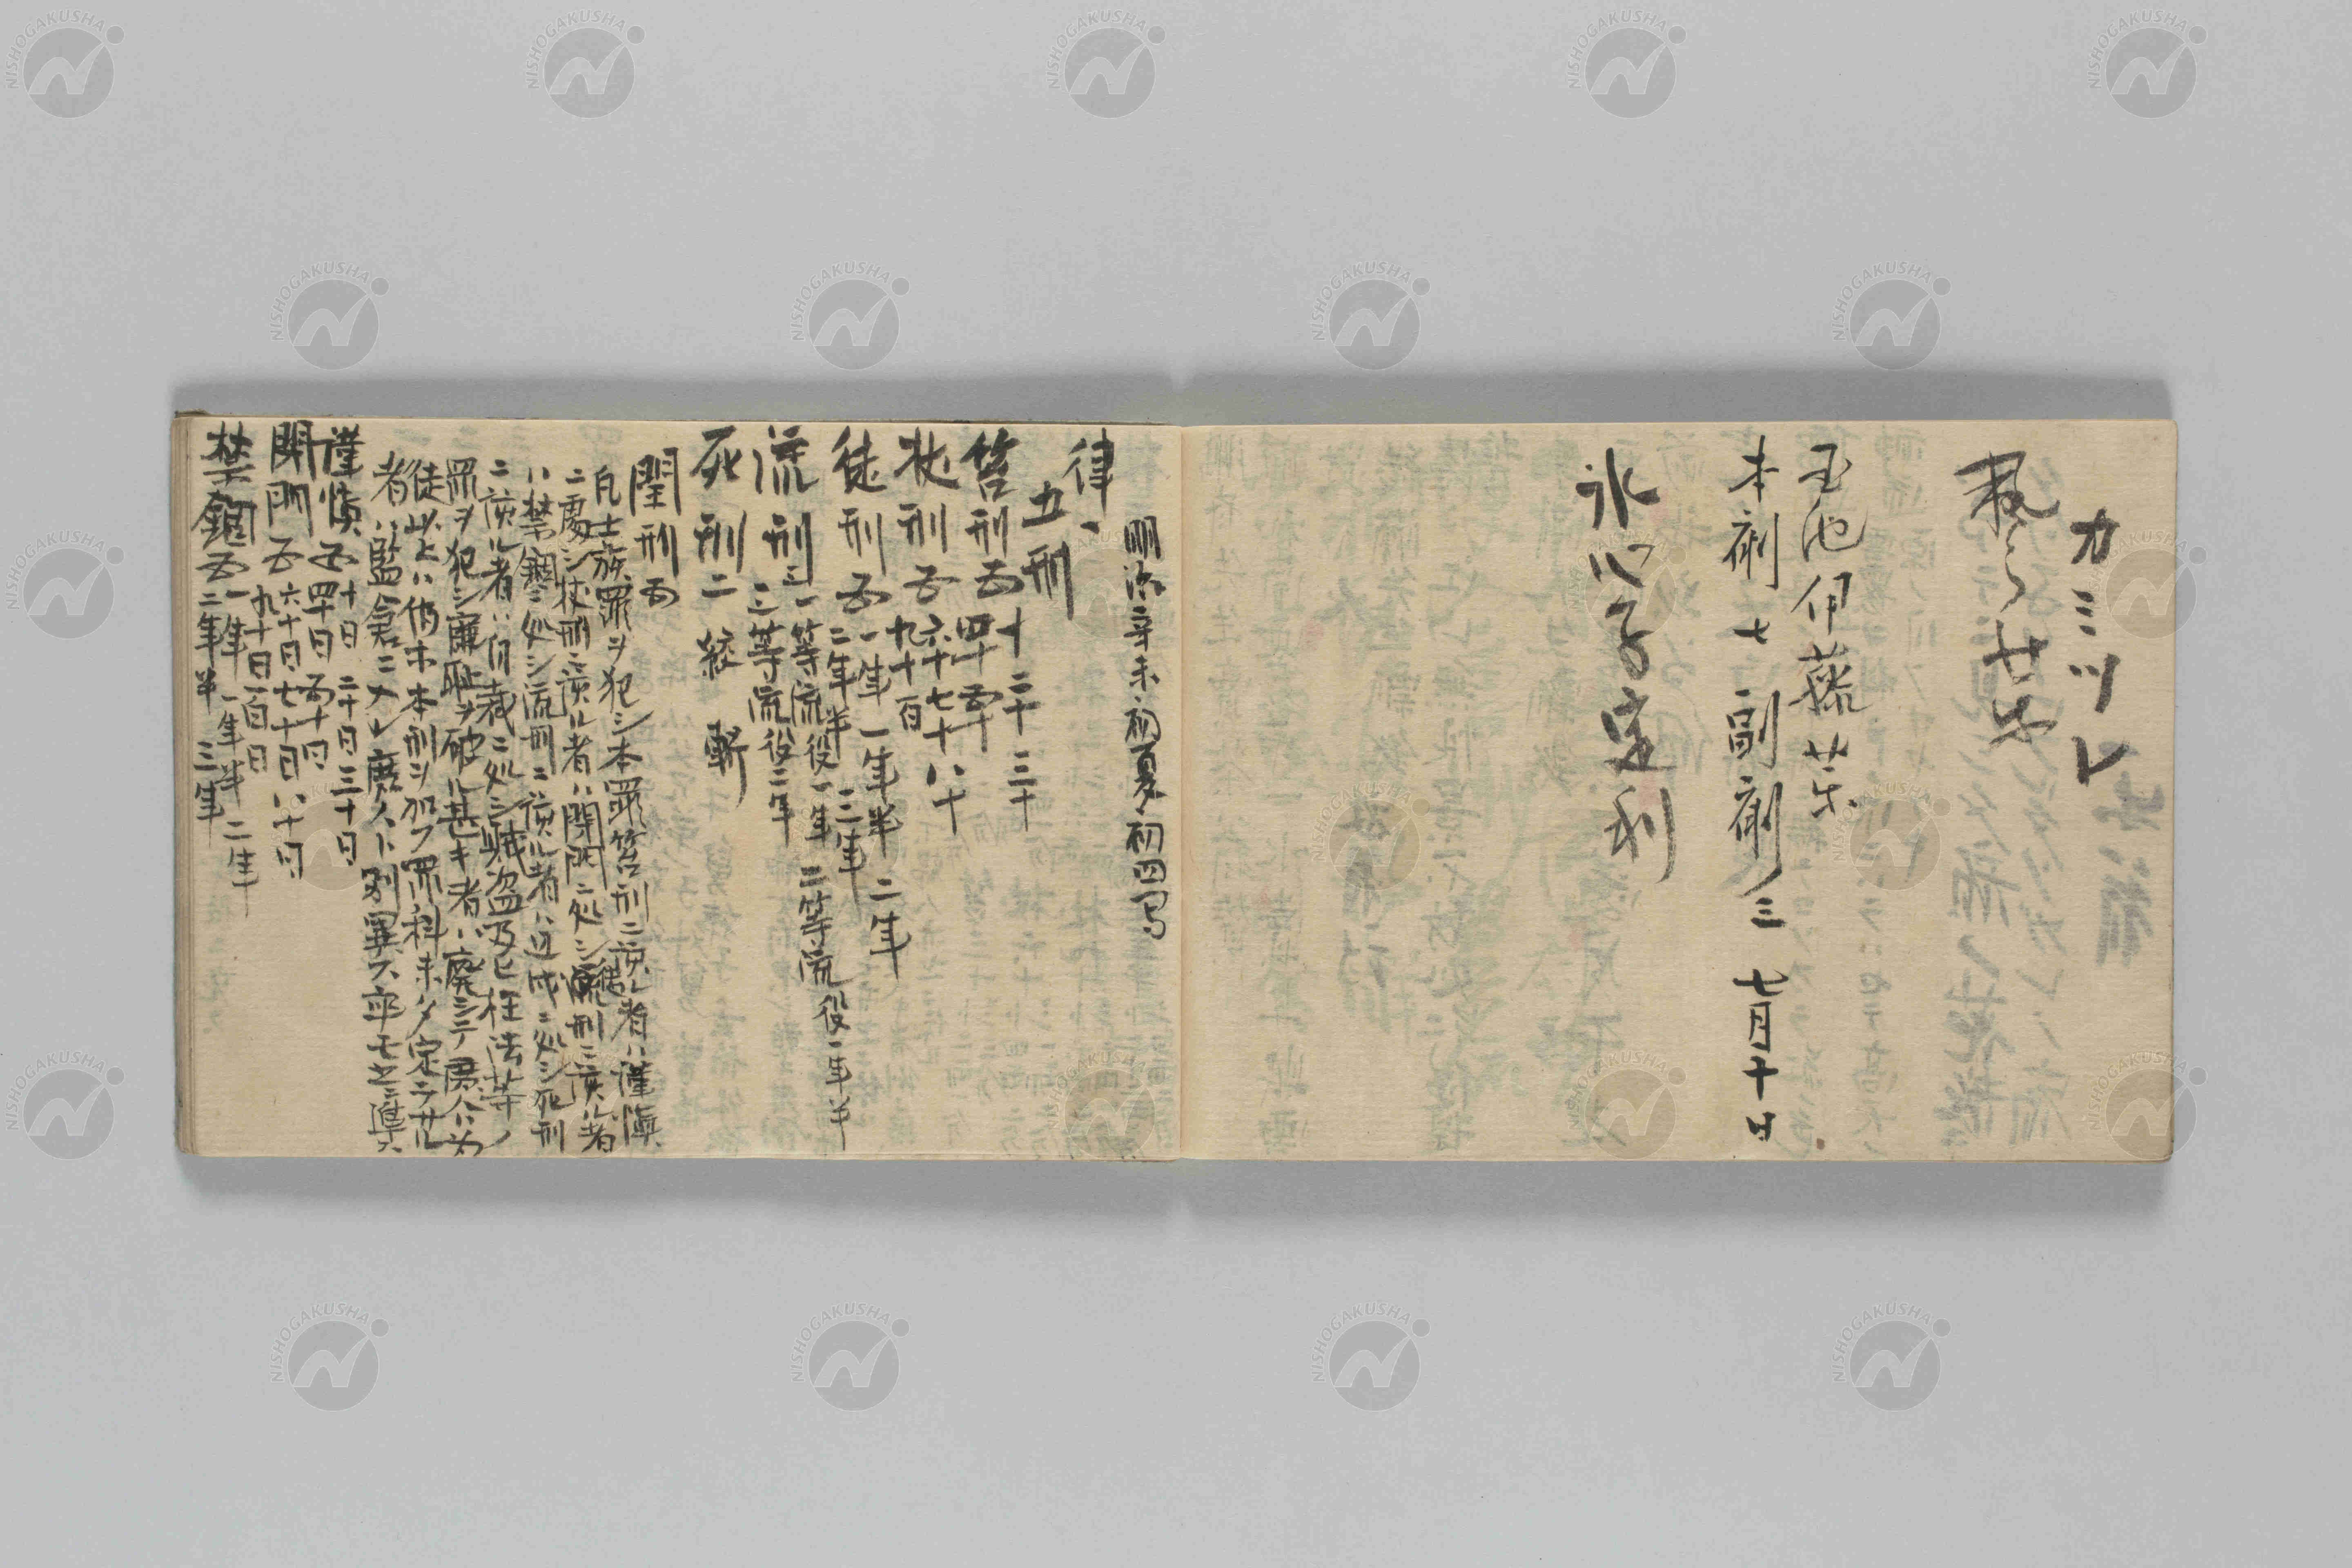 カミツレ
玉池伊藤牙
本剤七 副剤三 七月十日
氷心子定利
明治辛未初夏初四写
律一
五刑
笞刑五 十 二十 三十
四十 五十
杖刑五 六十 七十 八十
九十 百
徒刑五 一年 一年半 二年
二年半 三年
流刑三 一等流役一年 二等流役一年半
三等流役二年
死刑二 絞 斬
閏刑五
凡士族罪ヲ犯シ本罪笞刑ニ該ル者ハ謹慎
ニ処シ杖刑ニ該ル者ハ閉門ニ処シ徒刑ニ該ル者
ハ禁錮ニ処シ流刑ニ該ル者ハ辺戍ニ処シ死刑
ニ該ル者ハ自裁ニ処シ賊盗及ヒ枉法等ノ
罪ヲ犯シ廉耻ヲ破ル甚キ者ハ廃シテ庶人ト為
徒以上ハ仍ホ本刑ヲ加フ罪科未タ定ラサル
者ハ監倉ニ入レ庶人ト別異ス卒モ之ニ準ス
謹慎五 十日 二十日 三十日
四十日 五十日
閉門五 六十日 七十日 八十日
九十日 百日
禁錮五 一年 一年半 二年
二年半 三年
NISHOGAKUSHA